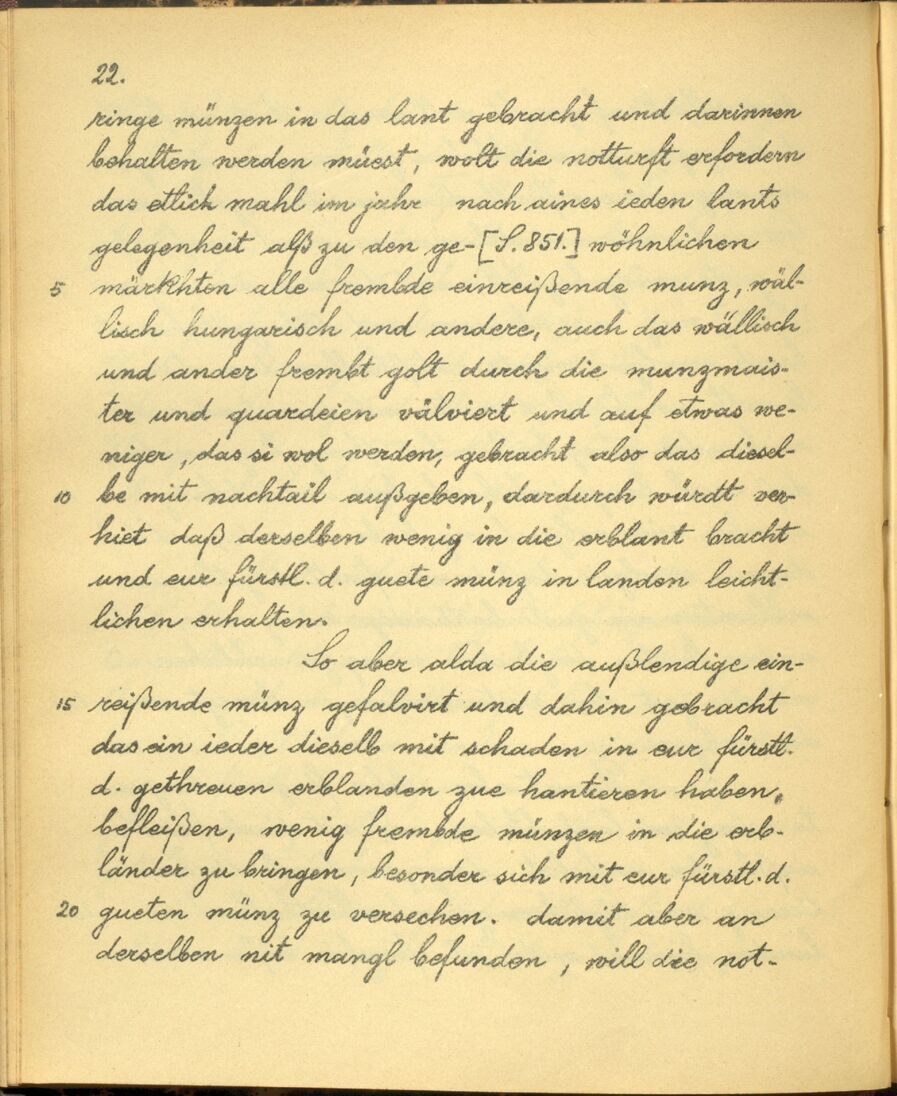 22.
ringe münzen in das lant gebracht und darinnen
behalten werden müest, wolt die notturft erfordern
das etlich mahl im jahr nach aines ieden lants
gelegenheit alß zu den ge-[S. 851.] wöhnlichen
5 märkhten alle frembde einreißende munz, wäl-
lisch hungarisch und andere, auch das wällisch
und ander frembt golt durch die munzmais-
ter und quardeien välviert und auf etwas we-
niger, das si wol werden, gebracht also das diesel-
10 be mit nachtail außgeben, dardurch würdt ver-
hiet daß derselben wenig in die erblant bracht
und eur fürstl. d. guete münz in landen leicht-
lichen erhalten.
So aber alda die außlendige ein-
15 reißende münz gefalvirt und dahin gebracht
das ein ieder dieselb mit schaden in eur fürstl.
d. gethreuen erblanden zue hantieren haben,
befleißen, wenig frembde münzen in die erb-
länder zu bringen, besonder sich mit eur fürstl. d.
20 gueten münz zu versechen. damit aber an
derselben nit mangl befunden, will die not-